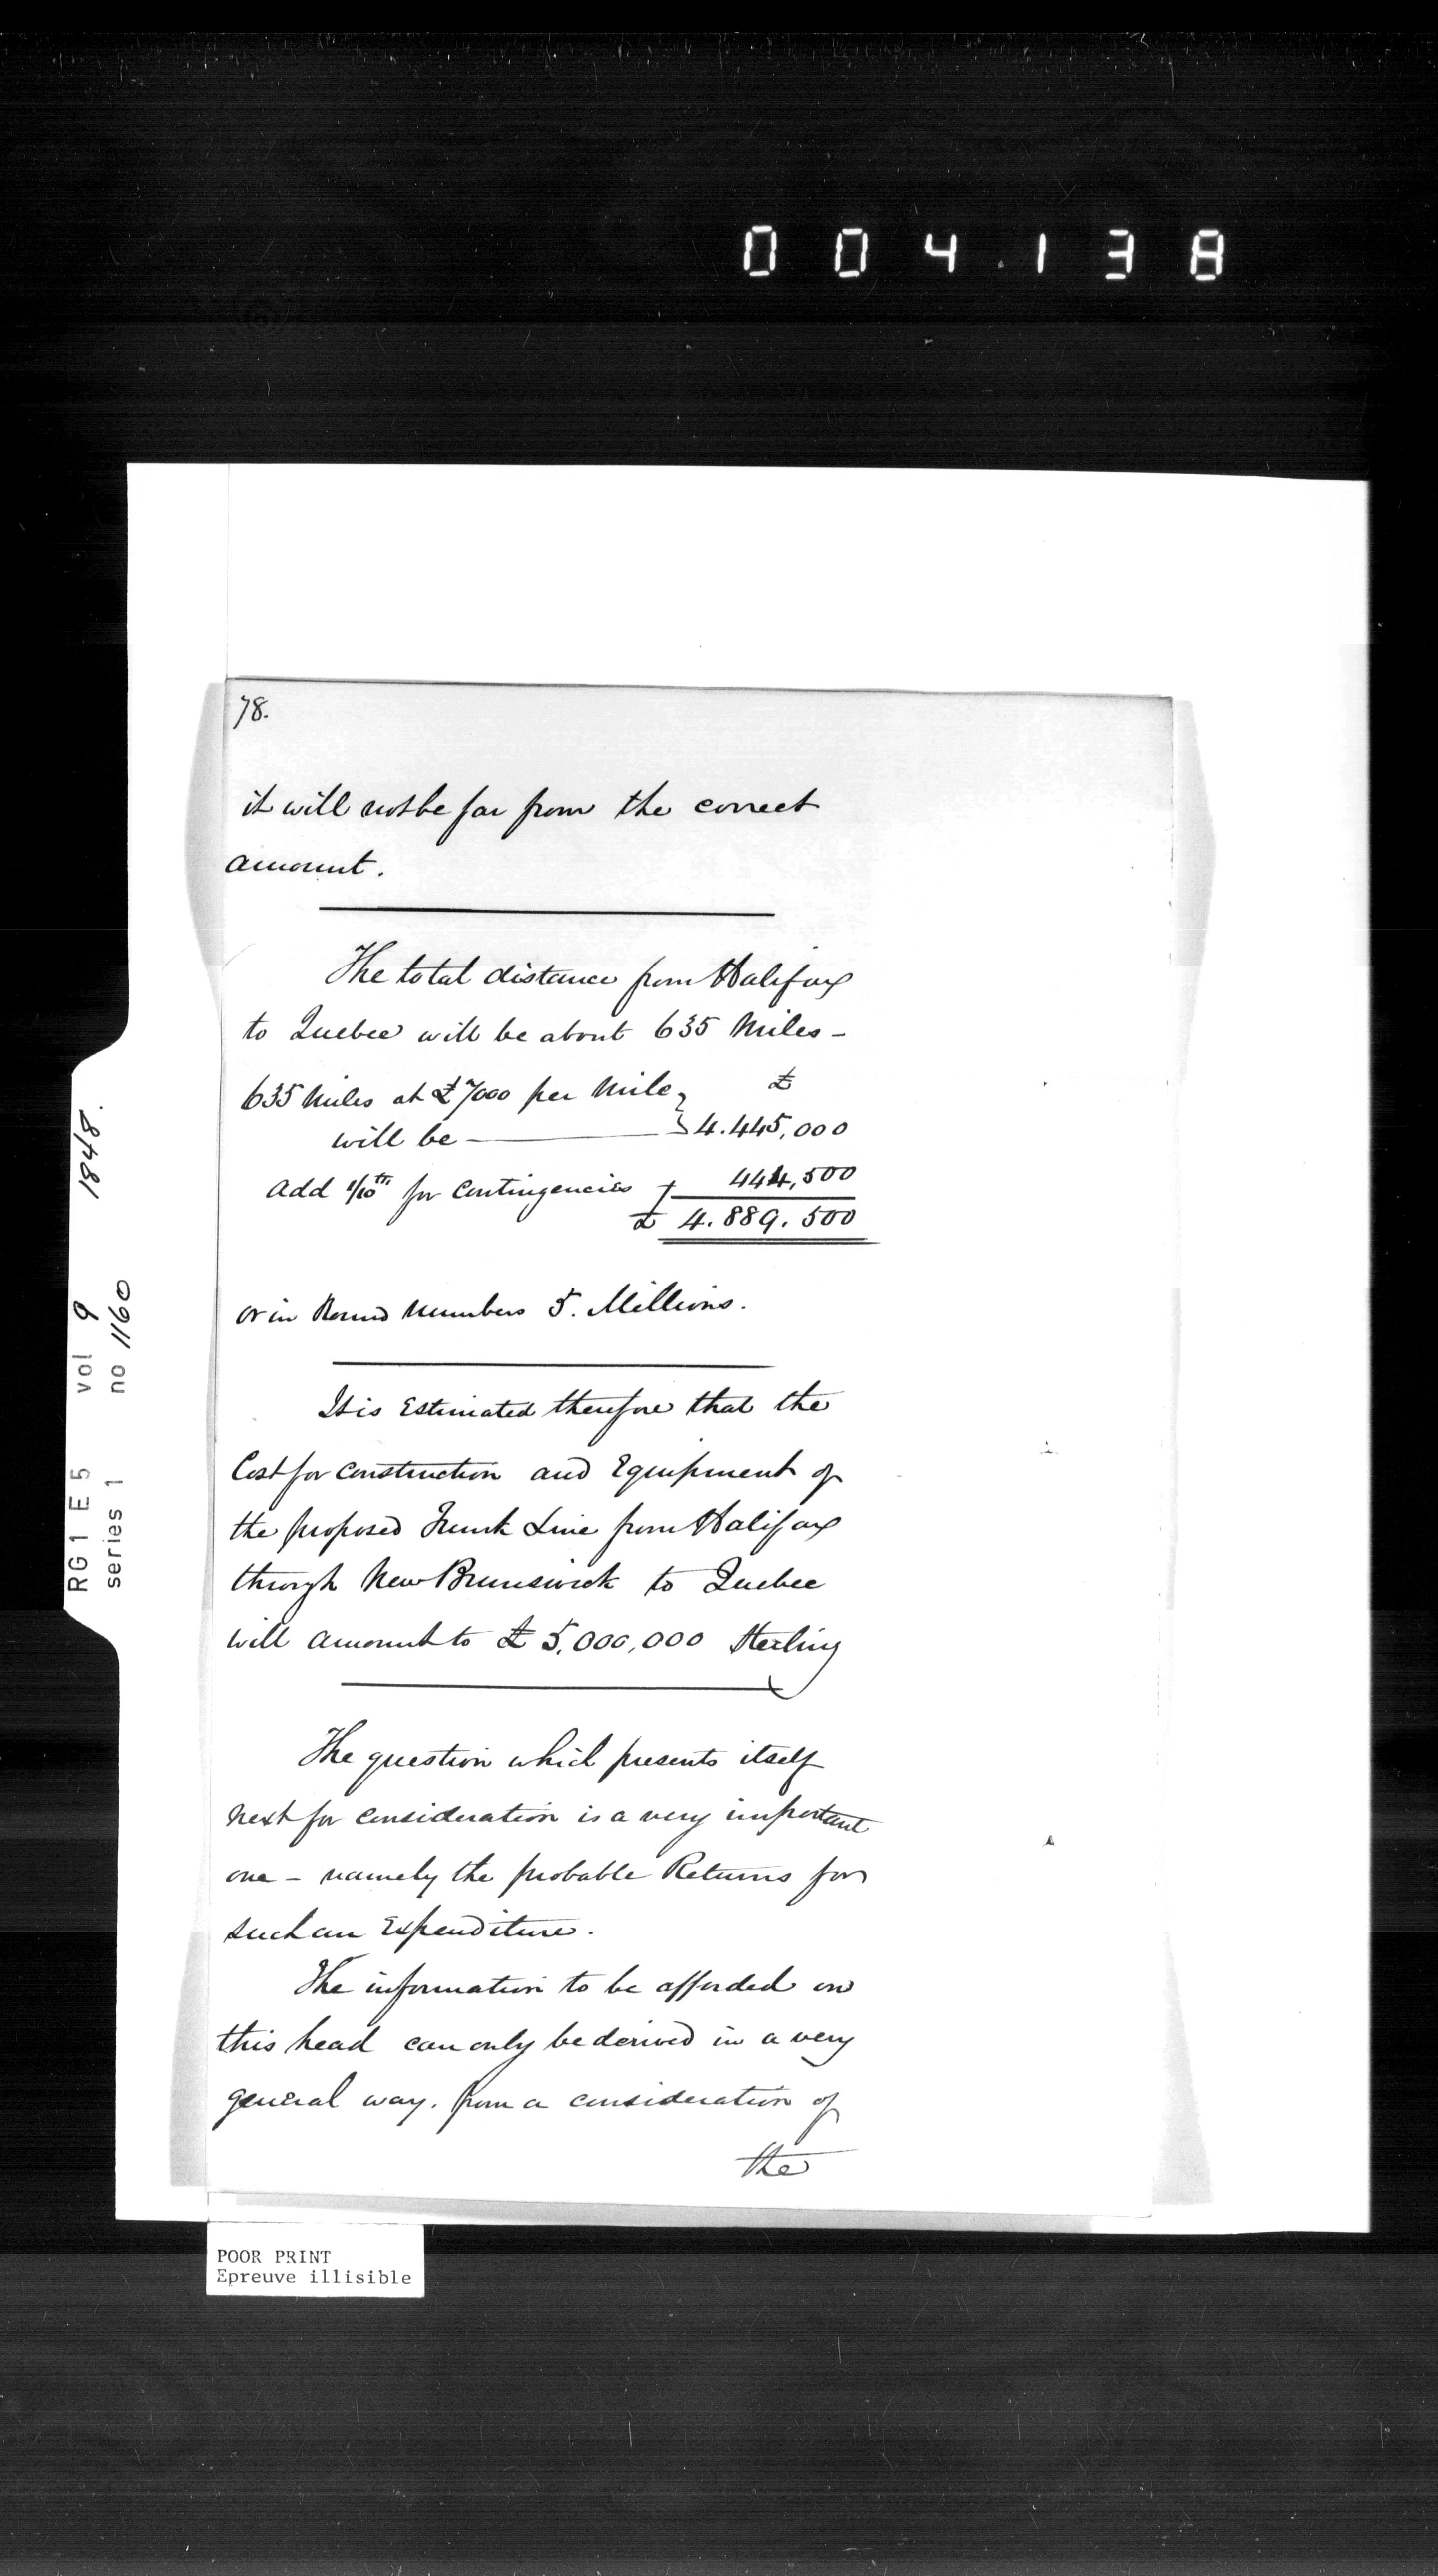 004.138
78.
it will not be far from the correct
amount.
The total distance from Halifax
to Quebec will be about 635 Miles -
635 Miles at £7000 per Mile } £
will be — 4.445,000
Add 1/10th for Contingencies + 444,500
£ 4.889.500
or in Round Numbers 5. Millions.
It is Estimated therefore that the
Cost for Construction and Equipment of
the proposed Trunk Line from Halifax
through New Brunswick to Quebec
will amount to £5,000,000 Sterling
The question which presents itself
next for consideration is a very important
one - namely the probable Returns for
such an Expenditure.
The information to be afforded on
this head can only be derived in a very
general way. from a consideration of
the
RG1 E5 vol 9 1848.
series 1 no 1160
POOR PRINT
Epreuve illisible